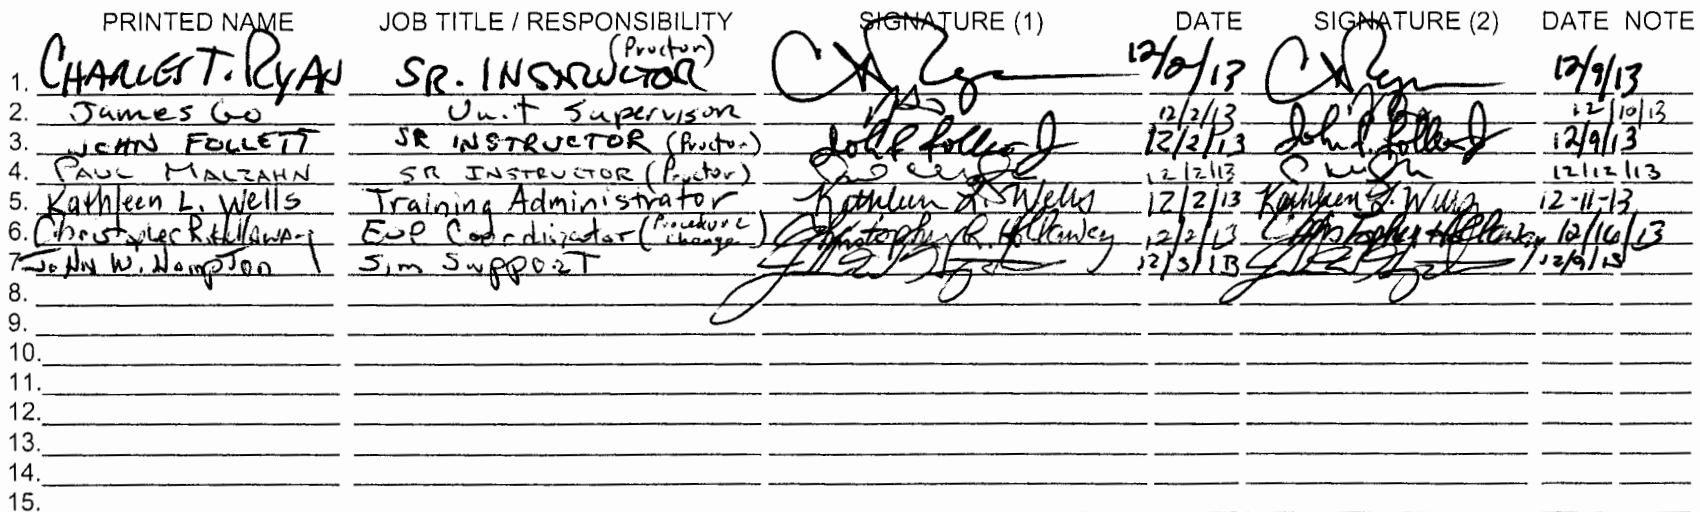 PRINTED NAME JOB TITLE / RESPONSIBILITY SIGNATURE (1) DATE SIGNATURE (2) DATE NOTE
1. CHARLES T. RYAN SR. INSTRUCTOR (Proctor) 12/2/13 12/9/13
2. James Go Unit Supervisor 12/2/13 12/10/13
3. JOHN FOLLETT SR INSTRUCTOR (Proctor) 12/2/13 12/9/13
4. PAUL MALZAHN SR INSTRUCTOR (Proctor) 12/2/13 12/12/13
5. Kathleen L. Wells Training Administrator Kathleen L. Wells 12/2/13 Kathleen L. Wells 12-11-13
6. Christopher R. Hollaway Coordinator (Procedure change) Christopher R. Hollaway 12/2/13 Christopher Hollaway 12/16/13
7. John W. Hampton Sim Support 12/3/13 12/9/13
8.
9.
10.
11.
12.
13.
14.
15.